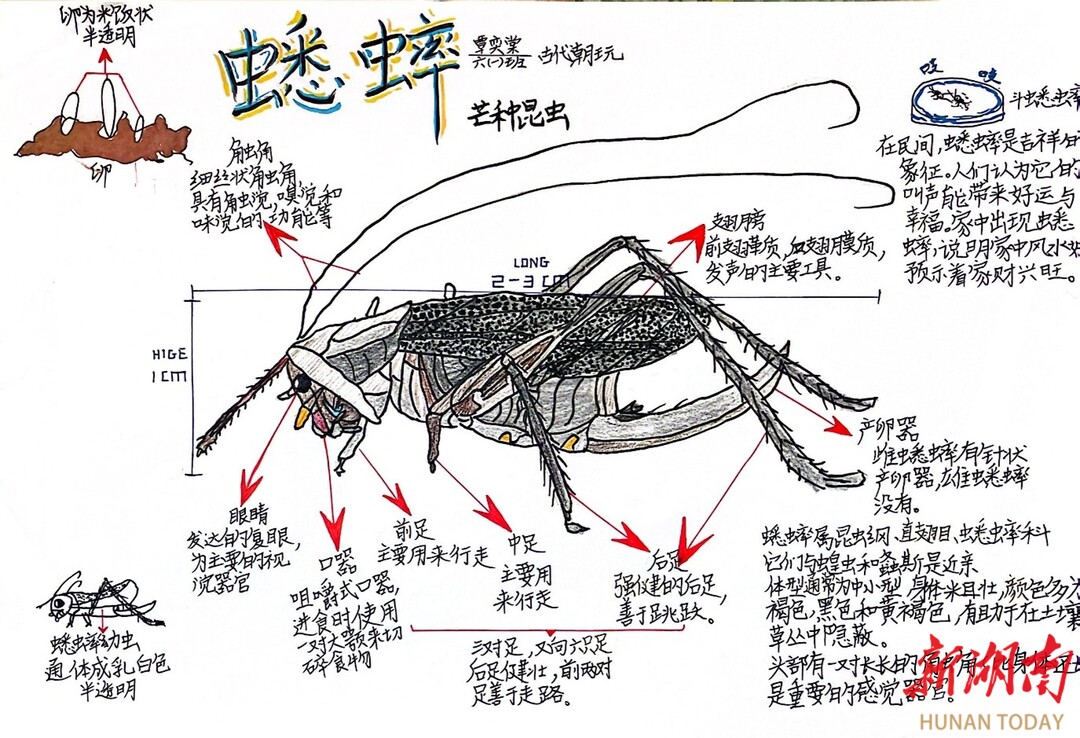 卵为米饭状
半透明
卵
蟋蟀
覃奕棠
六(一)班
古代潮玩
芒种昆虫
吱 吱
斗蟋蟀
在民间,蟋蟀是吉祥的
象征。人们认为它的
叫声能带来好运与
幸福。家中出现蟋
蟀,说明家中风水好
预示着家财兴旺。
触角
细丝状触角,
具有触觉,嗅觉和
味觉的功能等
翅膀
前翅革质,后翅膜质,
发声的主要工具。
LONG
2-3 CM
HIGE
1CM
产卵器
雌蟋蟀有针状
产卵器,雄蟋蟀
没有。
眼睛
发达的复眼,
为主要的视
觉器官
口器
咀嚼式口器,
进食时使用
一对大颚来切
碎食物
前足
主要用来行走
中足
主要用
来行走
后足
强健的后足,
善于跳跃。
三对足,又向六只足
后足仅壮,前两对
足善于走路。
蟋蟀幼虫
通体成乳白色
半透明
蟋蟀属昆虫纲、直翅目、蟋蟀科
它们与蝗虫和螽斯是近亲
体型通常为中小型,身体粗壮,颜色多为
褐色,黑色和黄褐色,有助于在土壤
草丛中隐蔽。
头部有一对长长的触角
是重要的感觉器官。
新湖南
HUNAN TODAY